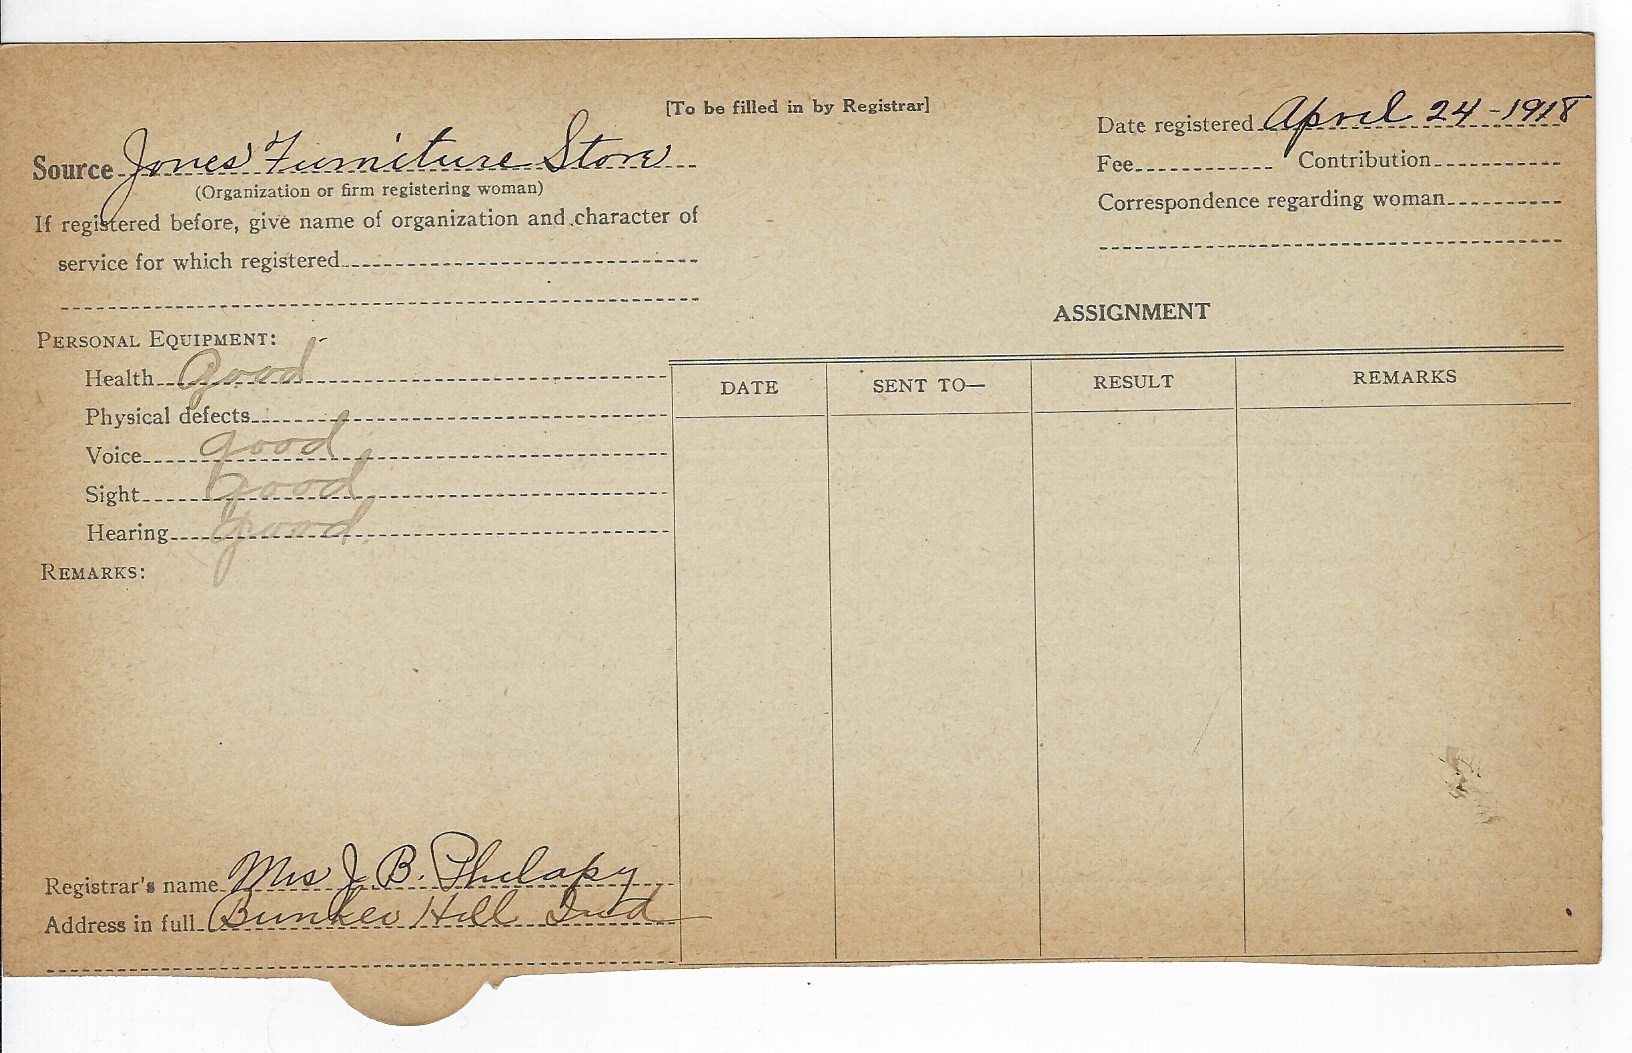 [To be filled in by Registrar]
Source Jones' Furniture Store
(Organization or firm registering woman)
If registered before, give name of organization and character of
service for which registered
Date registered April 24-1918
Fee Contribution
Correspondence regarding woman
PERSONAL EQUIPMENT:
Health good
Physical defects
Voice good
Sight good
Hearing good
REMARKS:
ASSIGNMENT
DATE SENT TO— RESULT REMARKS
Registrar's name Mrs J. B. Philapy
Address in full Bunker Hill Ind